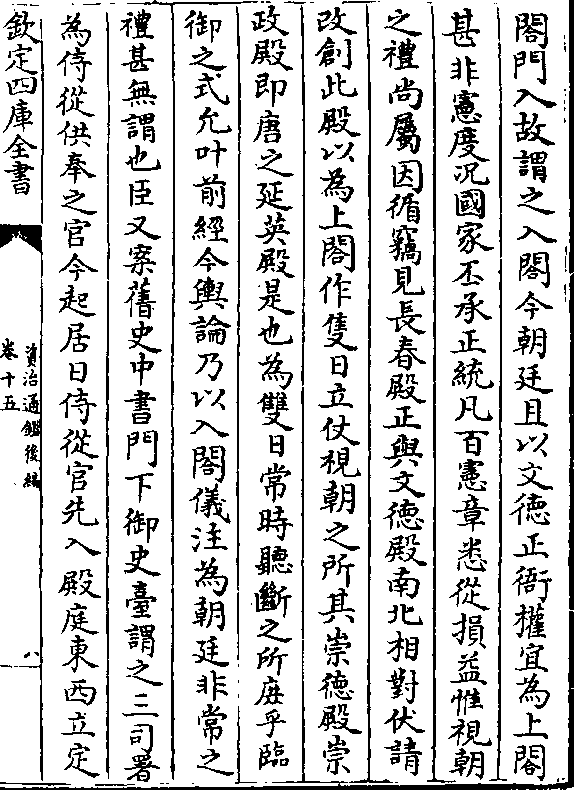 閤門入故謂之入閤今朝廷且以文德正衙權宜為上閤
甚非憲度况國家丕承正統凡百憲章悉從損益惟視朝
之禮尚屬因循竊見長春殿正與文德殿南北相對伏請
改創此殿以為上閤作隻日立仗視朝之所其崇德殿崇
政殿即唐之延英殿是也為雙日常時聽斷之所庻乎臨
御之式允叶前經今輿論乃以入閤儀注為朝廷非常之
禮甚無謂也臣又案舊史中書門下御史臺謂之三司署
為侍從供奉之官今起居日侍從官先入殿庭東西立定
欽定四庫全書
資治通鑑後編
卷十五
八